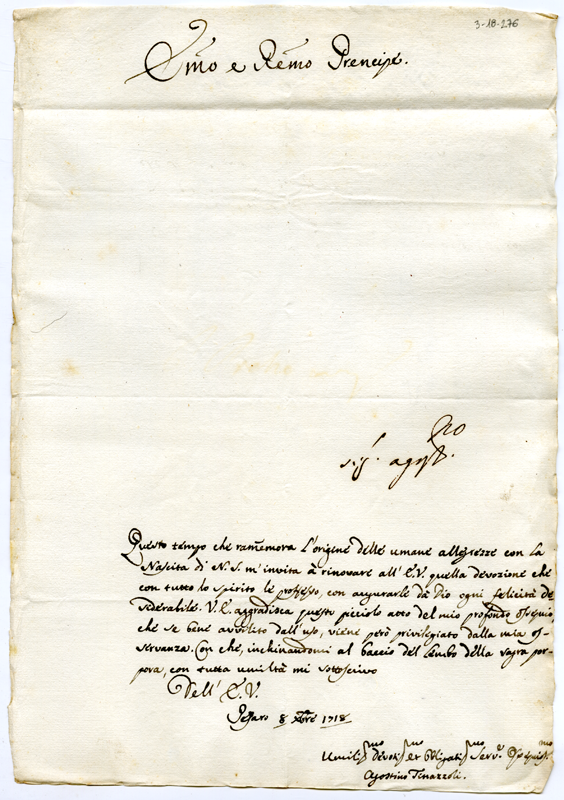 3-18-276
Em̃o e Rem̃o Prencipe.
Sig.r Agost.no
Questo tempo che ram̃emora l'origine delle umane allegrezze con la
Nascita di N. S. m'invita à rinovare all' E. V. quella devozione che
con tutto lo spirito le professo, con augurarle da Dio ogni felicità de
siderabile. V. E. aggradisca questo piccolo atto del mio profondo ossequio,
che se bene avvilito dall'uso, viene però privilegiato dalla mia os
servanza. Con che, inchinandomi al baccio del lembo della sagra por
pora, con tutta umiltà mi sottoscrivo
Dell' E. V.
Pesaro 8 Xbre 1718
Umiliss.mo Devotiss.mo et Obligatiss.mo Serv.e Ossequiss.mo
Agostino Tenazzoli.